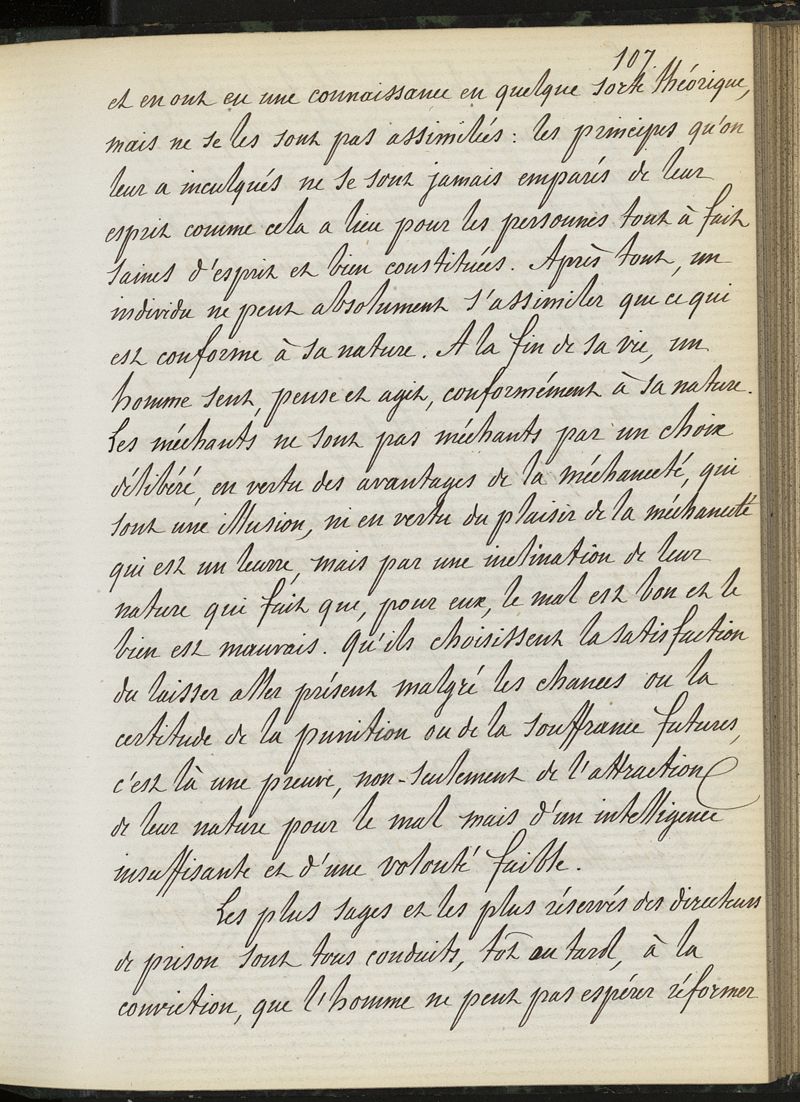 107
et en ont eu une connaissance en quelque sorte théorique,
mais ne se les sont pas assimilés : les principes qu'on
leur a inculqués ne se sont jamais emparés de leur
esprit comme cela a lieu pour les personnes tout à fait
saines d'esprit et bien constituées. Après tout, un
individu ne peut absolument s'assimiler que ce qui
est conforme à sa nature. A la fin de sa vie, un
homme sent, pense et agit, conformément à sa nature.
Les méchants ne sont pas méchants par un choix
délibéré, en vertu des avantages de la méchanceté, qui
sont une illusion, ni en vertu du plaisir de la méchanceté
qui est un leurre, mais par une inclination de leur
nature qui fait que, pour eux, le mal est bon et le
bien est mauvais. Qu'ils choisissent la satisfaction
du laisser aller présent malgré les chances ou la
certitude de la punition ou de la souffrance futures,
c'est là une preuve, non-seulement de l'attraction
de leur nature pour le mal mais d'un intelligence
insuffisante et d'une volonté faible.
Les plus sages et les plus réservés des directeurs
de prison sont tous conduits, tôt ou tard, à la
conviction, que l'homme ne peut pas espérer réformer